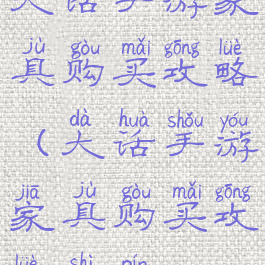 大话手游家
jù gòu mǎi gōng lüè
具购买攻略
dà huà shǒu yóu
(大话手游
jiā jù gòu mǎi gōng
家具购买攻
lüè shì pín